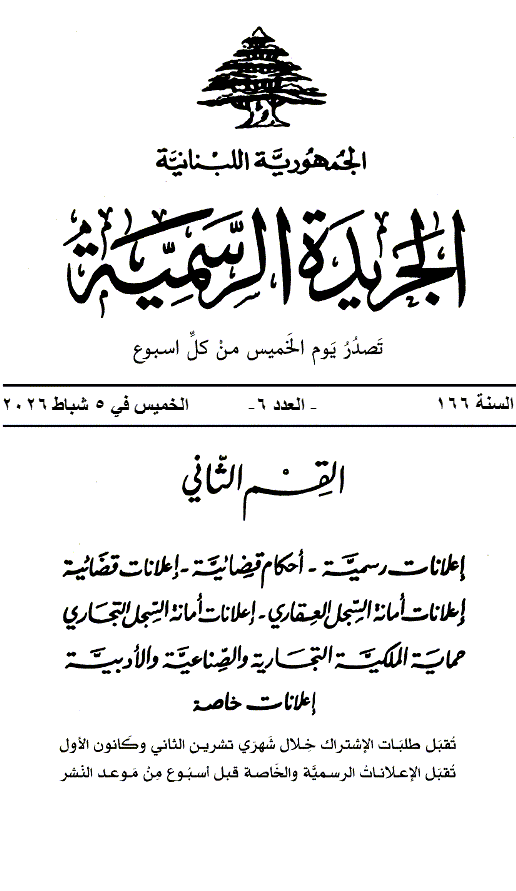 الجمهورية اللبنانية
الجريدة الرسمية
تَصدُرُ يَوم الخَميس منْ كلِّ اسبوع
السنة ١٦٦ - العدد ٦- الخميس في ٥ شباط ٢٠٢٦
القِسْم الثّاني
إعلانات رسميَّة - أحكام قضائيَّة - إعلانات قضائية
إعلانات أمانة السِّجل العقاري - إعلانات أمانة السِّجل التجاري
حماية الملكيَّة التجارية والصِّناعيَّة والأدبيَّة
إعلانات خاصة
تُقبَل طلبَات الإشتراك خِلال شَهرَي تشرين الثاني وكَانون الأول
تُقبَل الإعلانات الرسميَّة والخَاصة قبل أسبُوع مِنْ مَوعد النَشر